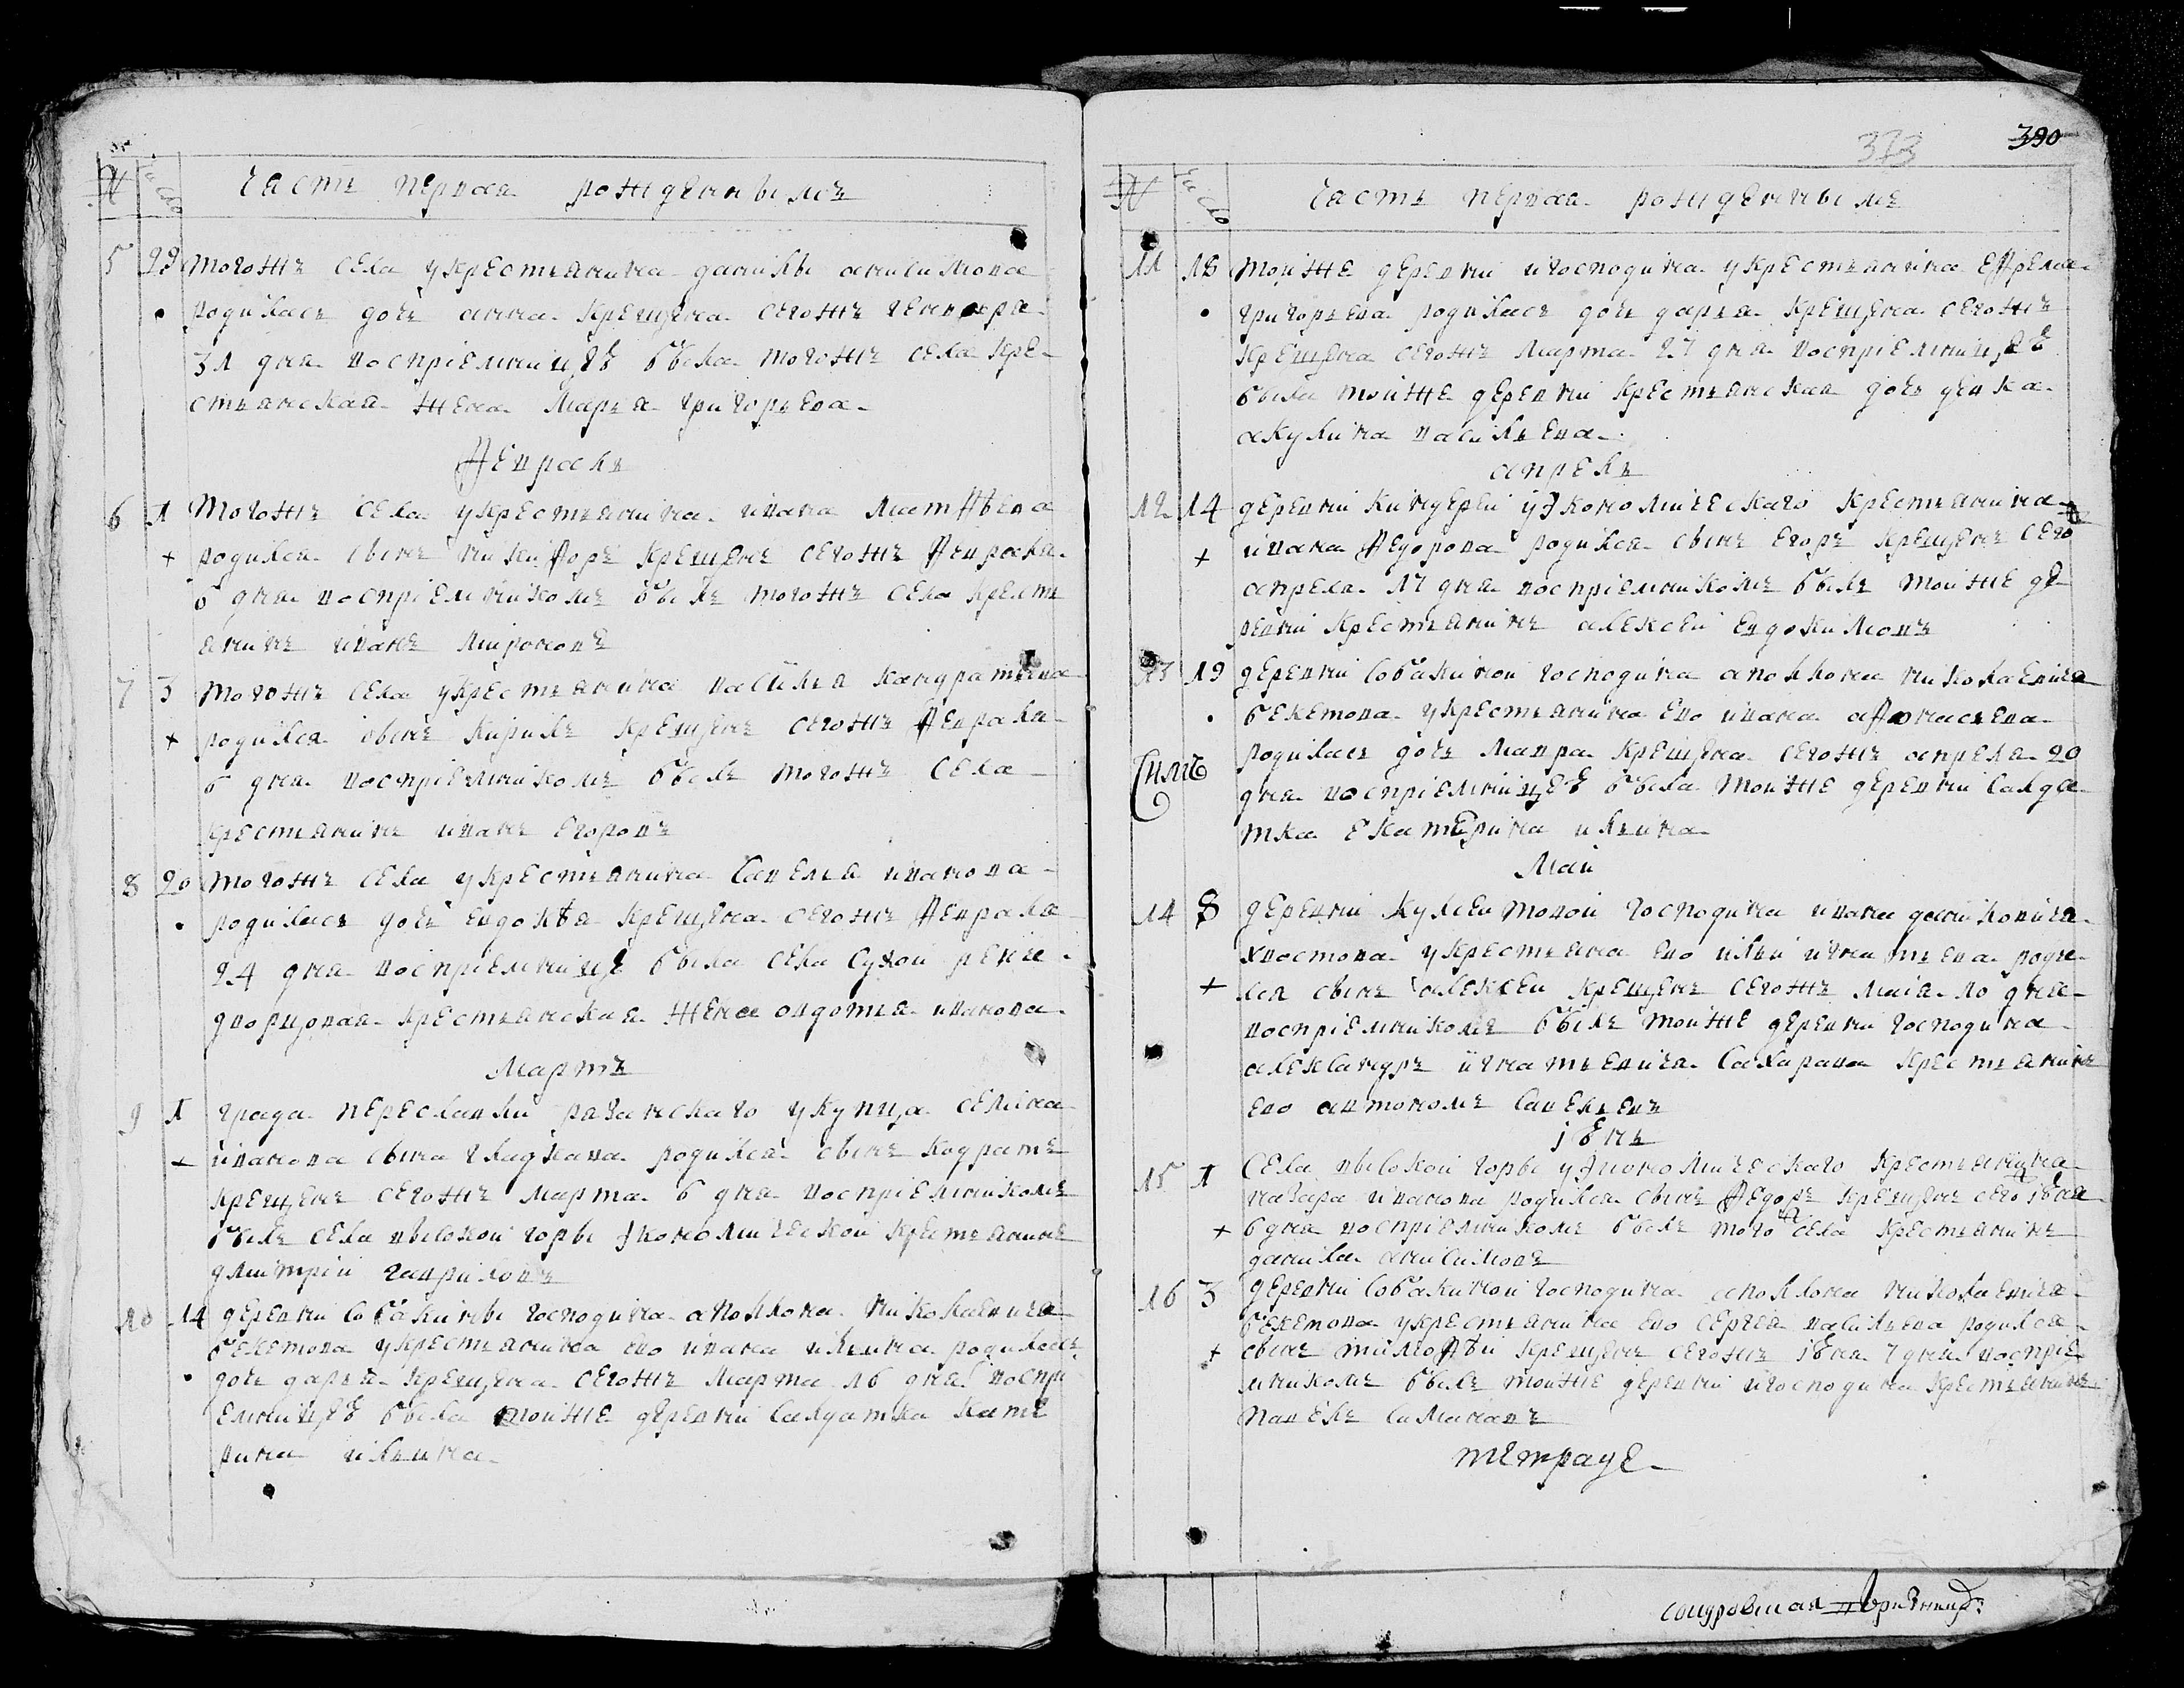 № Число часть первая рожденныхъ
5 29 тогожъ села укрестьянина данилы анисимова
родилась дочь анна крещена сегожъ генваря
31 дня воспріемницею была тогожъ села кре
стьянская жена марья григорьева
февраль
6 1 тогожъ села укрестьянина ивана матфеева
+ родился сынъ никифоръ крещенъ сегожъ февраля
6 дня воспріемникомъ былъ тогожъ села кресть
янинъ иванъ мироновъ
7 3 тогожъ села укрестьянина василья кандратьева
+ родился сынъ кирилъ крещенъ сегожъ февраля
6 дня воспріемникомъ былъ тогожъ села
крестьянинъ иванъ егоровъ
8 20 тогожъ села укрестьянина савелья иванова
родилась дочь евдокѣя крещена сегожъ февраля
24 дня воспріемницею была села сухой
дворцовая крестьянская жена авдотья иванова
мартъ
9 1 града переславля разанскаго укупца семіона
+ иванова сына гладкава родился сынъ кодратъ
крещенъ сегожъ марта 6 дня воспріемникомъ
былъ села высокой горы экономической крестьянинъ
дмитрій гавриловъ
10 14 деревни собакины господина аполлона николаевича
бекетова укрестьянина ево ивана ильина родилась
дочь дарья крещена сегожъ марта 16 дня воспри
емницею была тойже деревни салдатка кате
рина ильина
373 390
№ Число часть первая рожденныхъ
11 18 тойже деревни игосподина укрестьянина ефрема
григорьева родилась дочь дарья крещена сегожъ
крещена сегожъ марта 27 дня воспріемницею
была тойже деревни крестьянская дочь девка
акулина васильева
апрель
12 14 деревни киндереи уэкономическаго крестьянина
+ ивана федорова родился сынъ егоръ крещенъ сегожъ
апреля 17 дня воспріемникомъ былъ тойже де
ревни крестьянинъ алексей евдокимовъ
13 19 деревни собакиной господина аполлона николаевича
бекетова укрестьянина ево ивана афонасьева
родилась дочь мавра крещена сегожъ апреля 20
дня воспріемницею была тойже деревни салда
тка екатерина ильина
май
14 8 деревни кулсеитовой господина ивана даниловича
хвостова укрестьяна ево ильи игнатьева роди
+ лся сынъ алексеи крещенъ сегожъ маія 10 дня
воспріемникомъ былъ тойже деревни господина
александръ игнатьевича сахарава крестьянинъ
ево автономъ савельевъ
іюнь
15 1 села высокой горы уэкономическаго крестьянина
назара иванова родился сынъ федоръ крещенъ сегожъ іюня
+ 6 дня воспріемникомъ былъ тогожъ села крестьянинъ
данила анисимовъ
16 3 деревни собакиной господина аполлона николаевича
бекетова укрестьянина ево сергея васильева родился
+ сынъ тимофѣй крещенъ сегожъ іюня 7 дня воспріе
мникомъ былъ тойже деревни игосподина крестьянинъ
павелъ симановъ